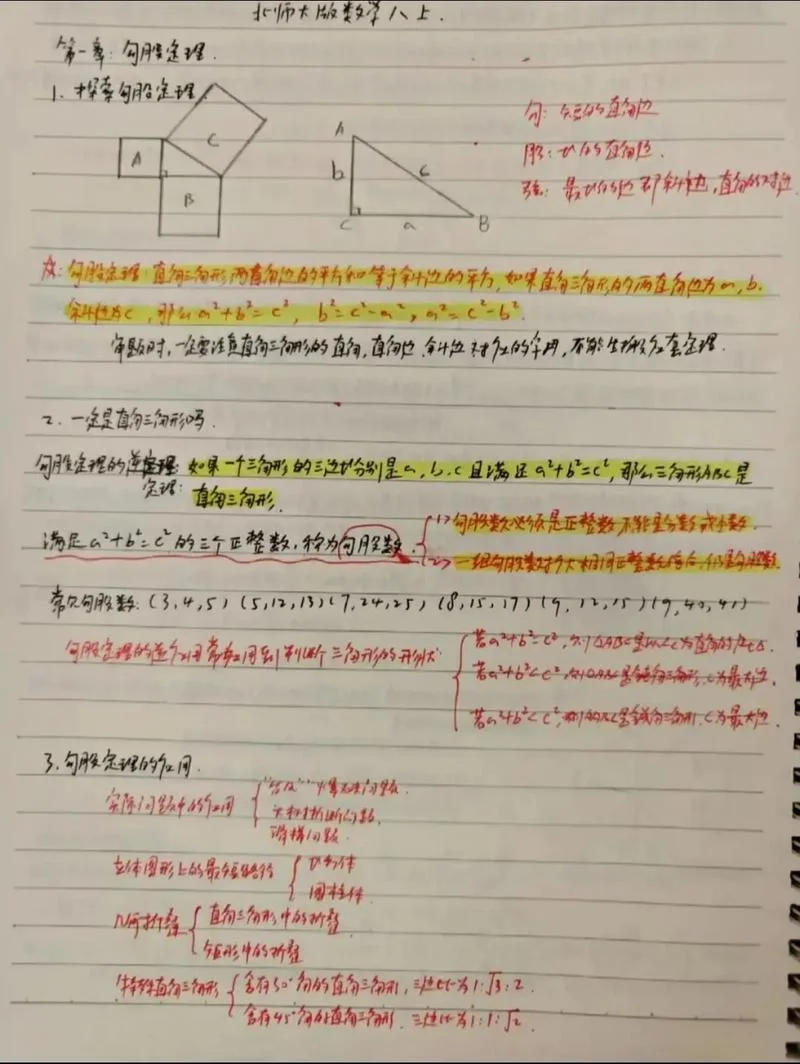 北师大版数学八上.
第一章:勾股定理.
1、探索勾股定理
A
B
C
A
b
c
C
a
B
勾:短的直角边
股:长的直角边.
弦:最长的边即斜边,直角的对边
勾股定理:直角三角形两直角边的平方和等于斜边的平方,如果直角三角形的两直角边为a,b.
斜边为c,那么a²+b²=c², b²=c²-a², a²=c²-b².
审题时,一定要注意直角三角形的直角,直角边、斜边对应的字母,不能生搬硬套定理.
2.一定是直角三角形吗.
勾股定理的逆定理:如果一个三角形的三边长分别是a,b,c且满足a²+b²=c²,那么三角形ABC是
定理:
直角三角形.
满足a²+b²=c²的三个正整数,称为勾股数
(1)勾股数必须是正整数不能是分数或小数.
(2)一组勾股数扩大相同正整数倍后,仍是勾股数.
常见勾股数:(3,4,5)(5,12,13)(7,24,25)(8,15,17)(9,12,15)(9,40,41)
勾股定理的逆应用常常用到判断三角形的形状
若a²+b²=c²,则△ABC是以∠C为直角的Rt△.
若a²+b²<c²,则△ABC是钝角三角形,c为最大边.
若a²+b²<c²,则△ABC是锐角三角形,c为最大边.
3.勾股定理的应用.
实际问题中的应用
大树折断问题,
滑梯问题.
立体图形上的最短路径
长方体
圆柱体
几何折叠
直角三角形中的折叠
矩形中的折叠
特殊直角三角形
含有30°角的直角三角形,三边比为1:√3:2.
含有45°角的直角三角形.三边比为1:1:√2.